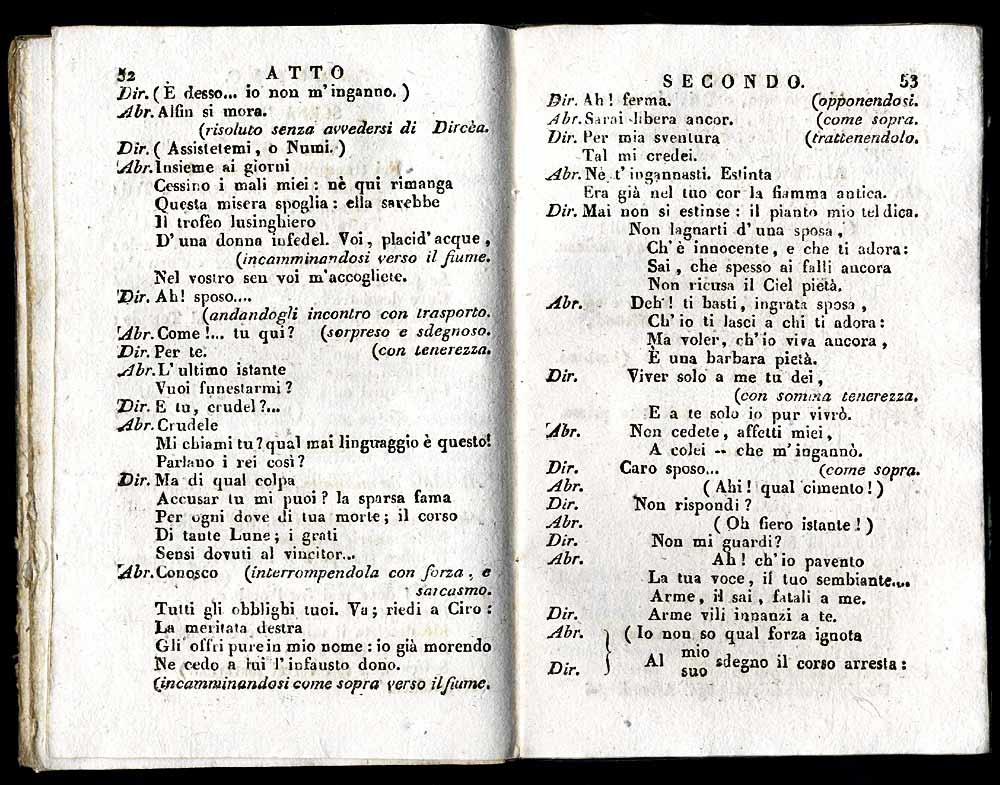 52 ATTO
Dir. (È desso... io non m'inganno.)
Abr. Alfin si mora.
(risoluto senza avvedersi di Dircèa.
Dir. (Assistetemi, o Numi.)
Abr. Insieme ai giorni
Cessino i mali miei: nè qui rimanga
Questa misera spoglia: ella sarebbe
Il trofèo lusinghiero
D'una donna infedel. Voi, placid'acque,
(incamminandosi verso il fiume.
Nel vostro sen voi m'accogliete.
Dir. Ah! sposo....
(andandogli incontro con trasporto.
Abr. Come!... tu qui? (sorpreso e sdegnoso.
Dir. Per te. (con tenerezza.
Abr. L'ultimo istante
Vuoi funestarmi?
Dir. E tu, crudel?...
Abr. Crudele
Mi chiami tu? qual mai linguaggio è questo!
Parlano i rei così?
Dir. Ma di qual colpa
Accusar tu mi puoi? la sparsa fama
Per ogni dove di tua morte; il corso
Di tante Lune; i grati
Sensi dovuti al vincitor...
Abr. Conosco (interrompendola con forza, e
sarcasmo.
Tutti gli obblighi tuoi. Va; riedi a Ciro:
La meritata destra
Gli offri pure in mio nome: io già morendo
Ne cedo a lui l'infausto dono.
(incamminandosi come sopra verso il fiume.
SECONDO. 53
Dir. Ah! ferma. (opponendosi.
Abr. Sarai libera ancor. (come sopra.
Dir. Per mia sventura (trattenendolo.
Tal mi credei.
Abr. Nè t'ingannasti. Estinta
Era già nel tuo cor la fiamma antica.
Dir. Mai non si estinse: il pianto mio tel dica.
Non lagnarti d'una sposa,
Ch'è innocente, e che ti adora:
Sai, che spesso ai falli ancora
Non ricusa il Ciel pietà.
Abr. Deh! ti basti, ingrata sposa,
Ch'io ti lasci a chi ti adora:
Ma voler, ch'io viva ancora,
È una barbara pietà.
Dir. Viver solo a me tu dei,
(con somma tenerezza.
E a te solo io pur vivrò.
Abr. Non cedete, affetti miei,
A colei -- che m'ingannò.
Dir. Caro sposo... (come sopra.
Abr. (Ahi! qual cimento!)
Dir. Non rispondi?
Abr. (Oh fiero istante!)
Dir. Non mi guardi?
Abr. Ah! ch'io pavento
La tua voce, il tuo sembiante....
Arme, il sai, fatali a me.
Dir. Arme vili innanzi a te.
Abr. (Io non so qual forza ignota
mio
Dir. Al sdegno il corso arresta:
suo